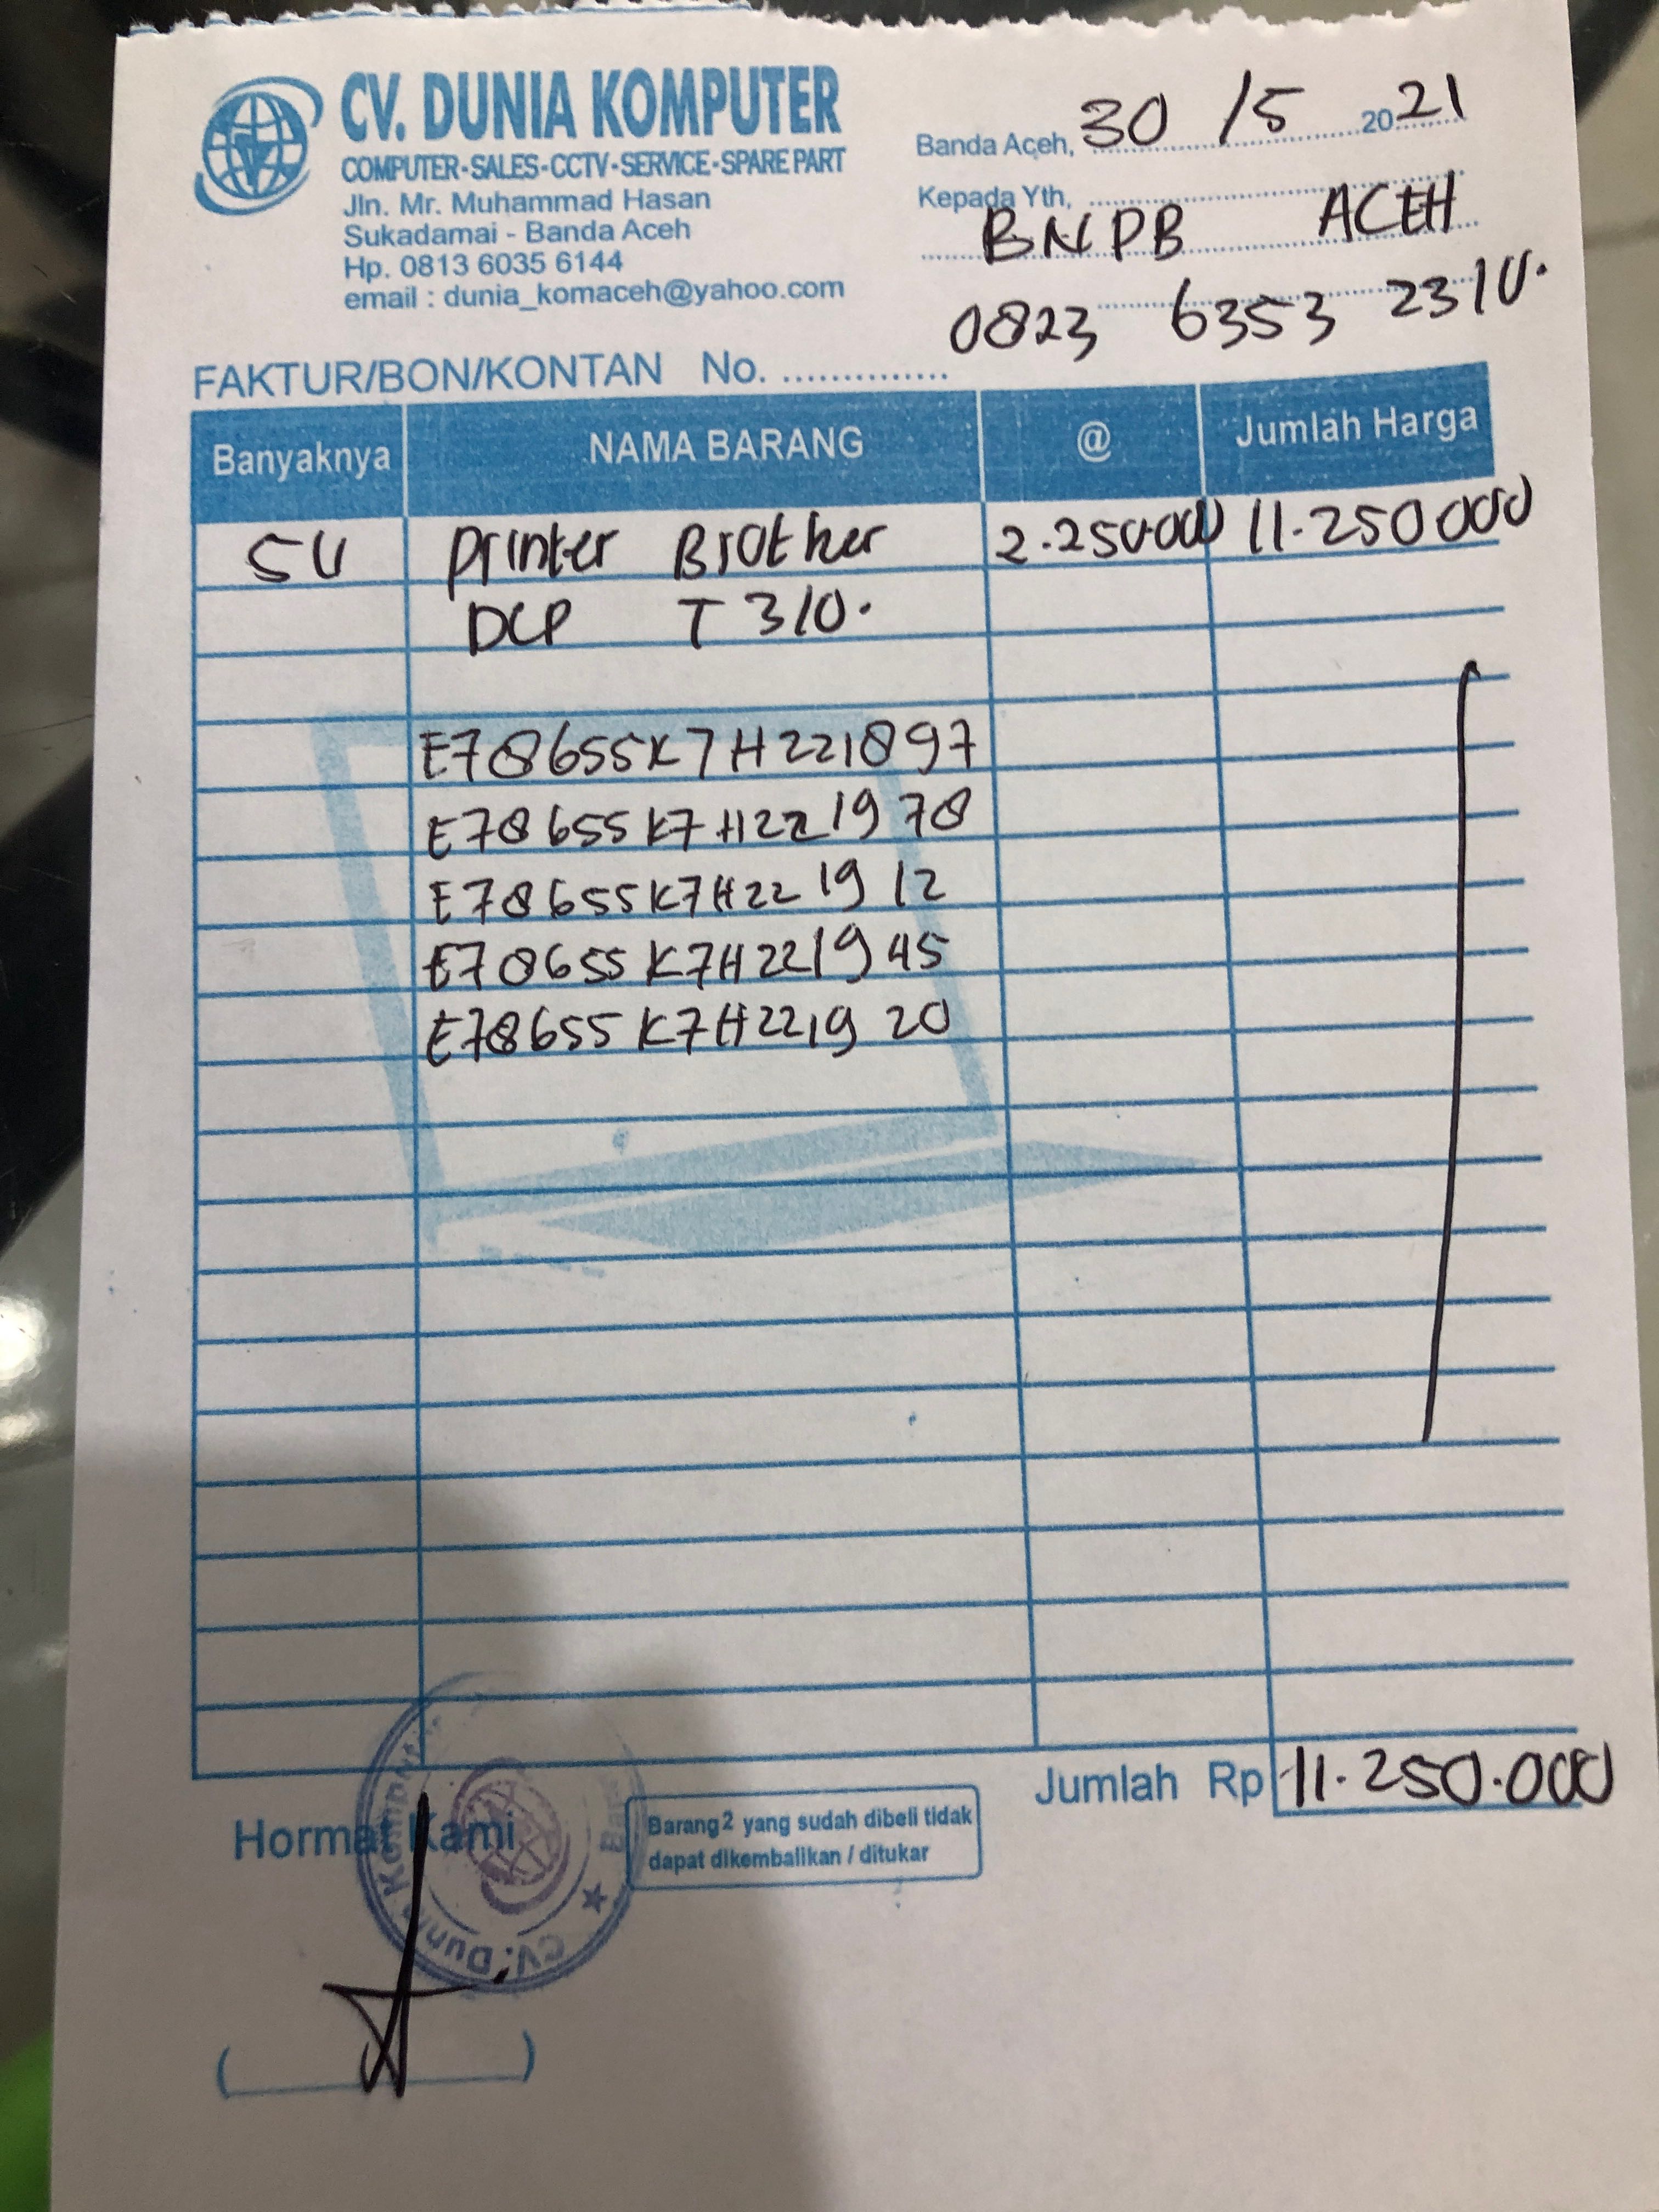 CV. DUNIA KOMPUTER
COMPUTER-SALES-CCTV-SERVICE-SPARE PART
Jln. Mr. Muhammad Hasan
Sukadamai - Banda Aceh
Hp. 0813 6035 6144
email : dunia_komaceh@yahoo.com
Banda Aceh, 30 /5 2021
Kepada Yth,
BNPB ACEH
0823 6353 2310.
FAKTUR/BON/KONTAN No. ..............
Banyaknya NAMA BARANG @ Jumlah Harga
5U Printer Brother 2.250.000 11.250000
DCP T310.
E78655K7H221897
E78655K7H221978
E78655K7H221912
E78655K7H221945
E78655K7H221920
Jumlah Rp 11.250.000
Hormat Kami
Barang2 yang sudah dibeli tidak
dapat dikembalikan / ditukar
CV. Dunia Komputer